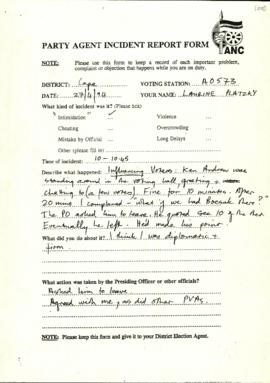 ANC
PARTY AGENT INCIDENT REPORT FORM
NOTE: Please use this form to keep a record of each important problem,
complaint or objection that happens while you are on duty.
DISTRICT: Cape VOTING STATION: A0573
DATE: 27/4/94 YOUR NAME: LAURINE PLATZKY
What kind of incident was it? (Please tick)
"Intimidation" Violence
Cheating Overcrowding
Mistake by Official Long Delays
Other (please fill in)
Time of incident: 10-10:45
Describe what happened: Influencing Voters: Ken Andrew was
standing around in the voting hall, greeting &
chatting to (a few voters). Fine for 10 minutes. After
20 mins I complained - "what if we had Boesak there?"
The PO asked him to leave. He quoted sec 10 of the Act
Eventually he left. Had made his point
What did you do about it? I think I was diplomatic &
firm
What action was taken by the Presiding Officer or other officials?
Asked him to leave
Agreed with me, as did other PVAs.
NOTE: Please keep this form and give it to your District Election Agent.